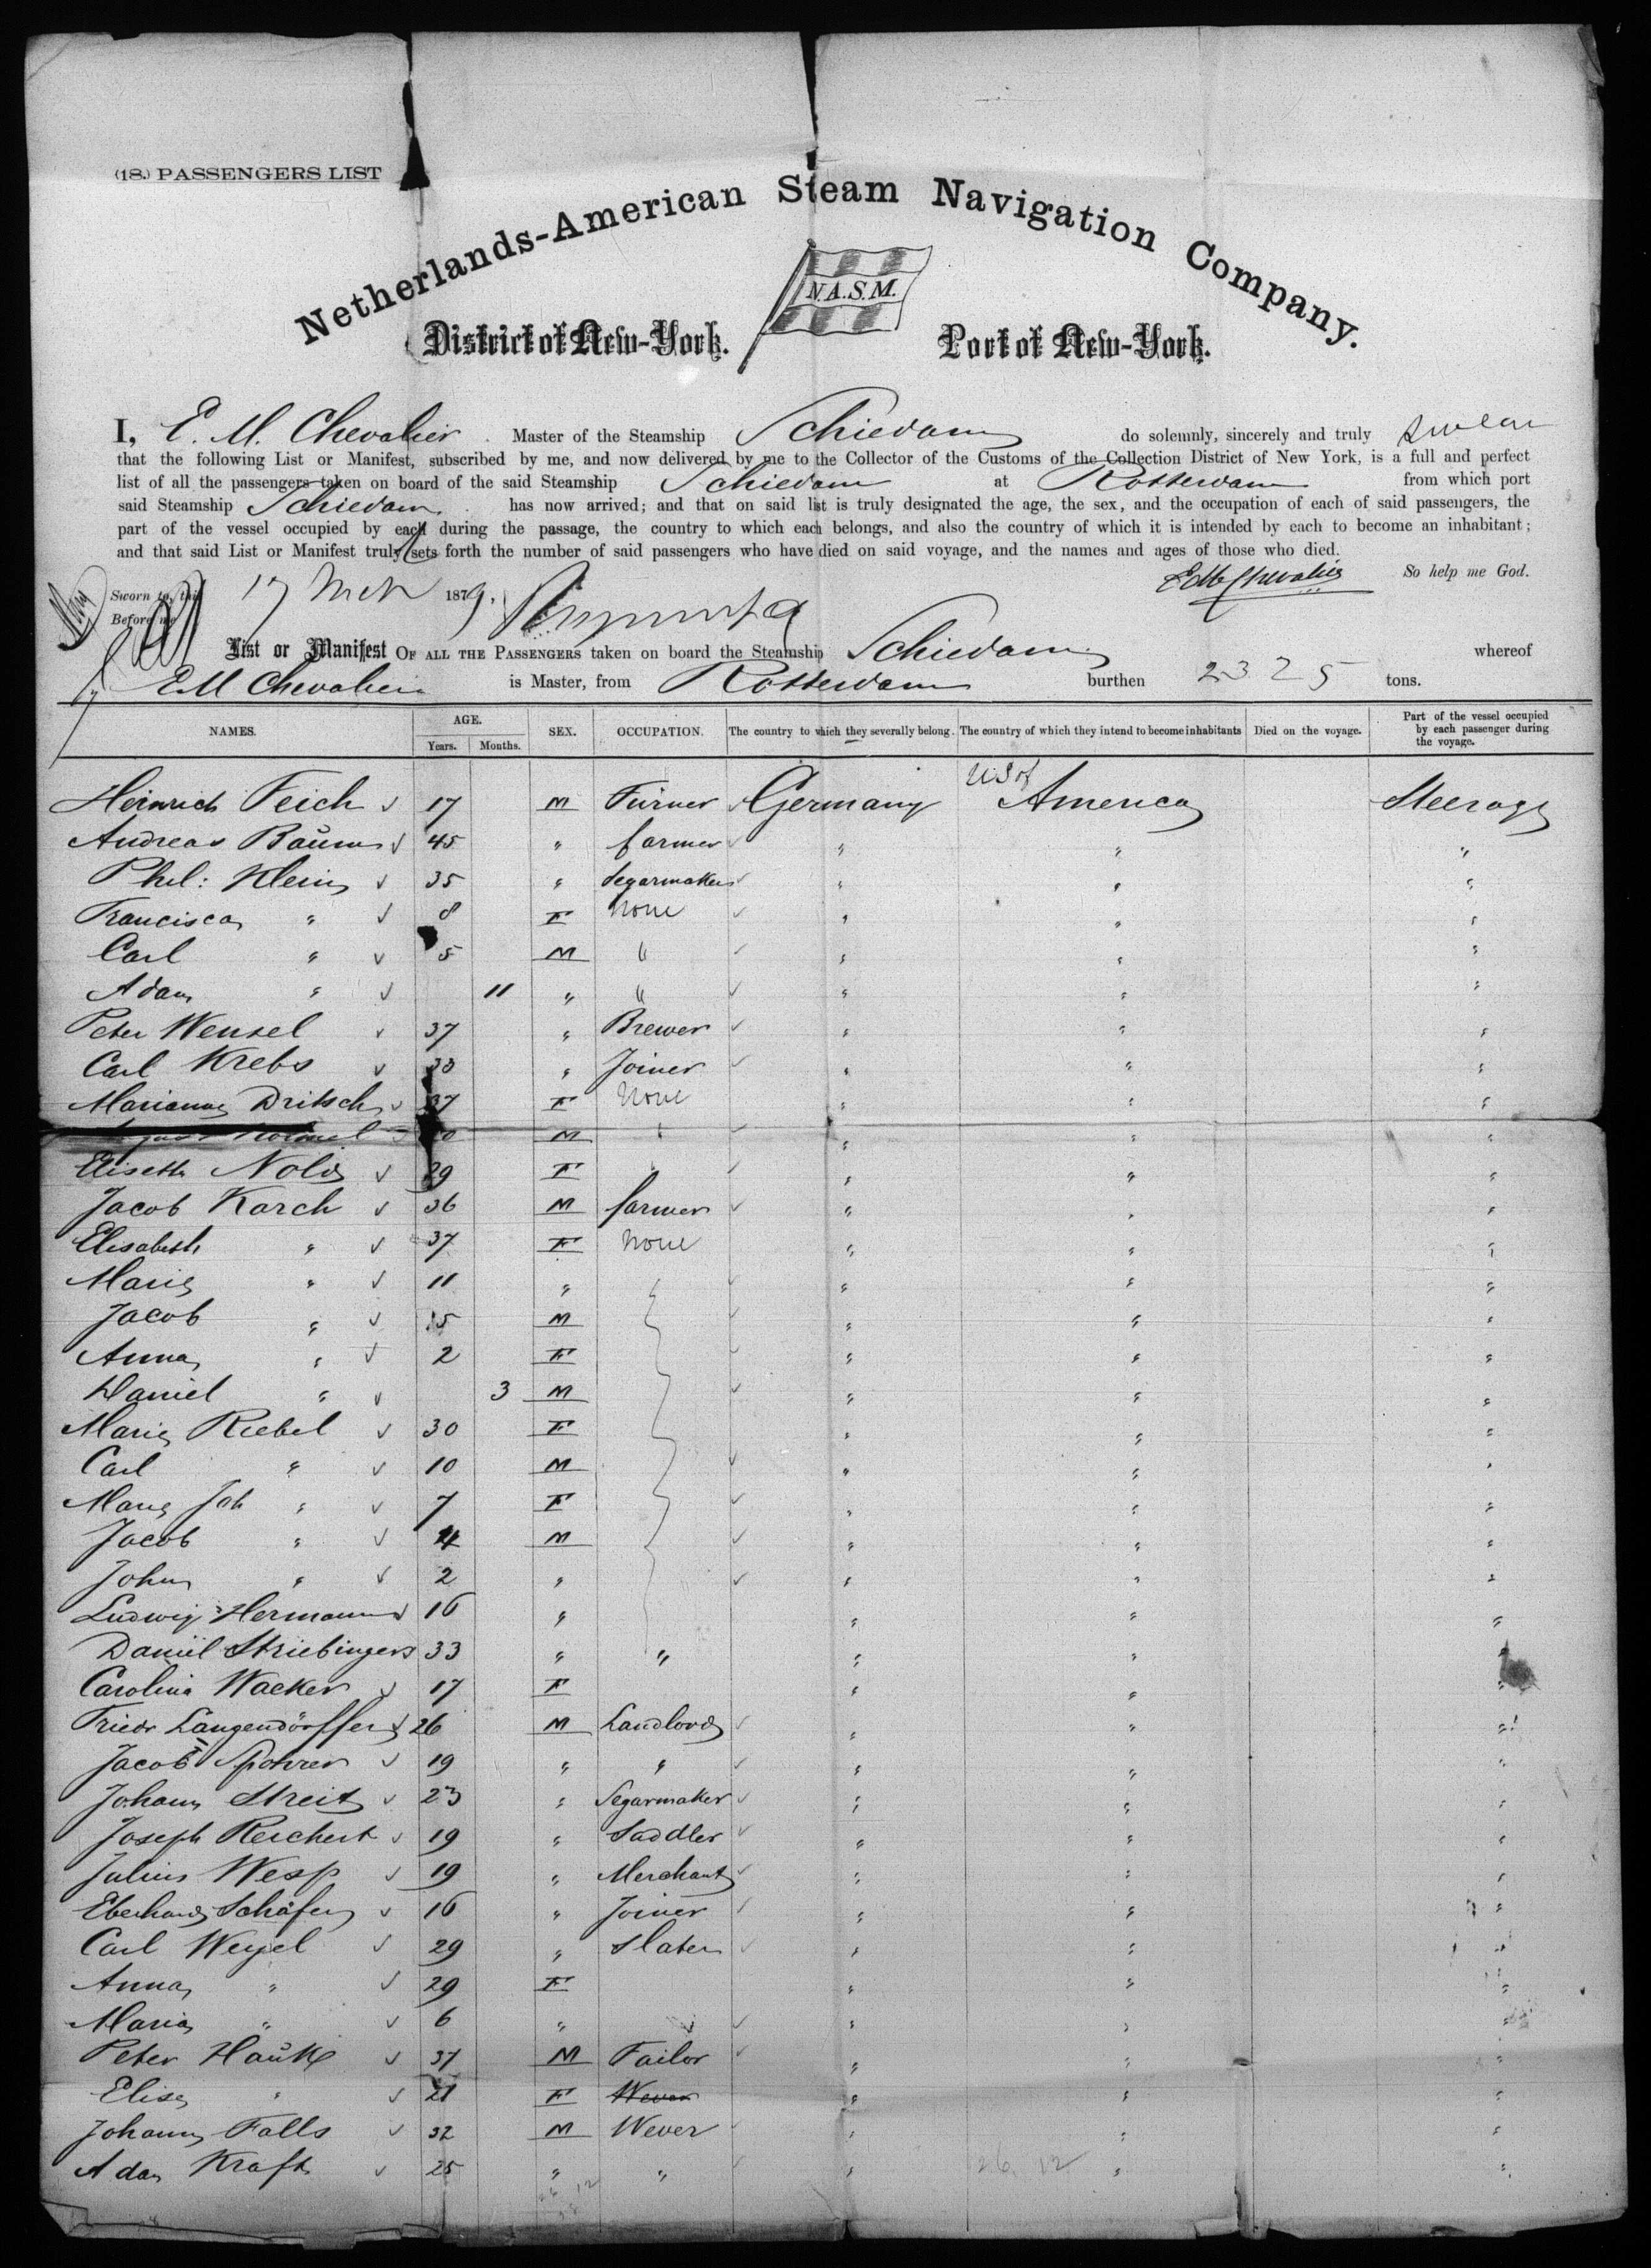 (18.) PASSENGERS LIST
Netherlands-American Steam Navigation Company.
N.A.S.M.
District of New-York. Port of New-York.
I, E. M. Chevalier. Master of the Steamship Schiedam do solemnly, sincerely and truly swear
that the following List or Manifest, subscribed by me, and now delivered by me to the Collector of the Customs of the Collection District of New York, is a full and perfect
list of all the passengers taken on board of the said Steamship Schiedam at Rotterdam from which port
said Steamship Schiedam has now arrived; and that on said list is truly designated the age, the sex, and the occupation of each of said passengers, the
part of the vessel occupied by each during the passage, the country to which each belongs, and also the country of which it is intended by each to become an inhabitant;
and that said List or Manifest truly sets forth the number of said passengers who have died on said voyage, and the names and ages of those who died.
So help me God.
Sworn to, this 17 1879, EM Chevalier
Before me
List or Manifest OF ALL THE PASSENGERS taken on board the Steamship Schiedam whereof
E M Chevalier is Master, from Rotterdam burthen 2325 tons.
NAMES. AGE. Years. Months. SEX. OCCUPATION. The country to which they severally belong. The country of which they intend to become inhabitants Died on the voyage. Part of the vessel occupied by each passenger during the voyage.
Heinrich Feich 17 M Turner Germany US of America Steerage
Andreas Baum 45 " farmer " " "
Phil: Klein 35 " Segarmaker " " "
Francisca " 8 F None " " "
Carl " 5 M " " " "
Adam " 11 " " " " "
Peter Wensel 37 " Brewer " " "
Carl Krebs 33 " Joiner " " "
Marianna Dritsch 37 F None " " "
M " " " "
Elisette Nold 29 F " " "
Jacob Karch 36 M farmer " " "
Elisabeth " 37 F None " " "
Maria " 11 " " " "
Jacob " 5 M " " "
Anna " 2 F " " "
Daniel " 3 M " " "
Maria Riebel 30 F " " "
Carl " 10 M " " "
Maria Joh " 7 F " " "
Jacob " 4 M " " "
John " 2 " " " "
Ludwig Hermann 16 " " " "
Daniel Striebinger 33 " " " " "
Carolina Wacker 17 F " " "
Friedr Langendörffer 26 M Landlord " " "
Jacob Spohrer 19 " " " " "
Johann Streit 23 " Segarmaker " " "
Joseph Reichert 19 " Saddler " " "
Julius Wesp 19 " Merchant " " "
Eberhard Schäfer 16 " Joiner " " "
Carl Weyel 29 " Slater " " "
Anna " 29 F " " "
Maria " 6 " " " "
Peter Hauk 37 M Tailor " " "
Elise " 21 F Wever " " "
Johann Falls 32 M Wever " " "
Adam Kraft 25 " " " " "
26. 12